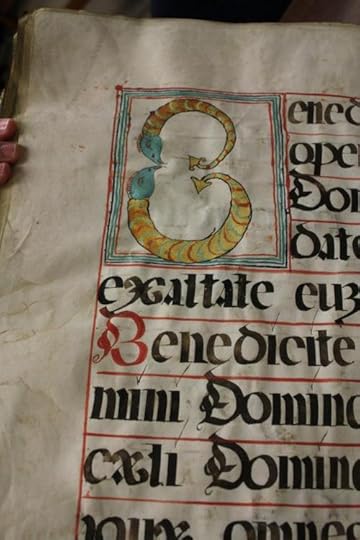 Bened
oper
Don
date
exaltate euʒ
Benedicite
mini Domino
cæli Domino
omnes